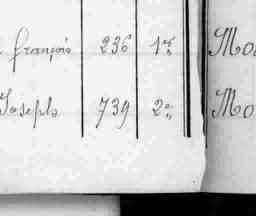 françois 236 1º Mo
Joseph 739 2º Mo